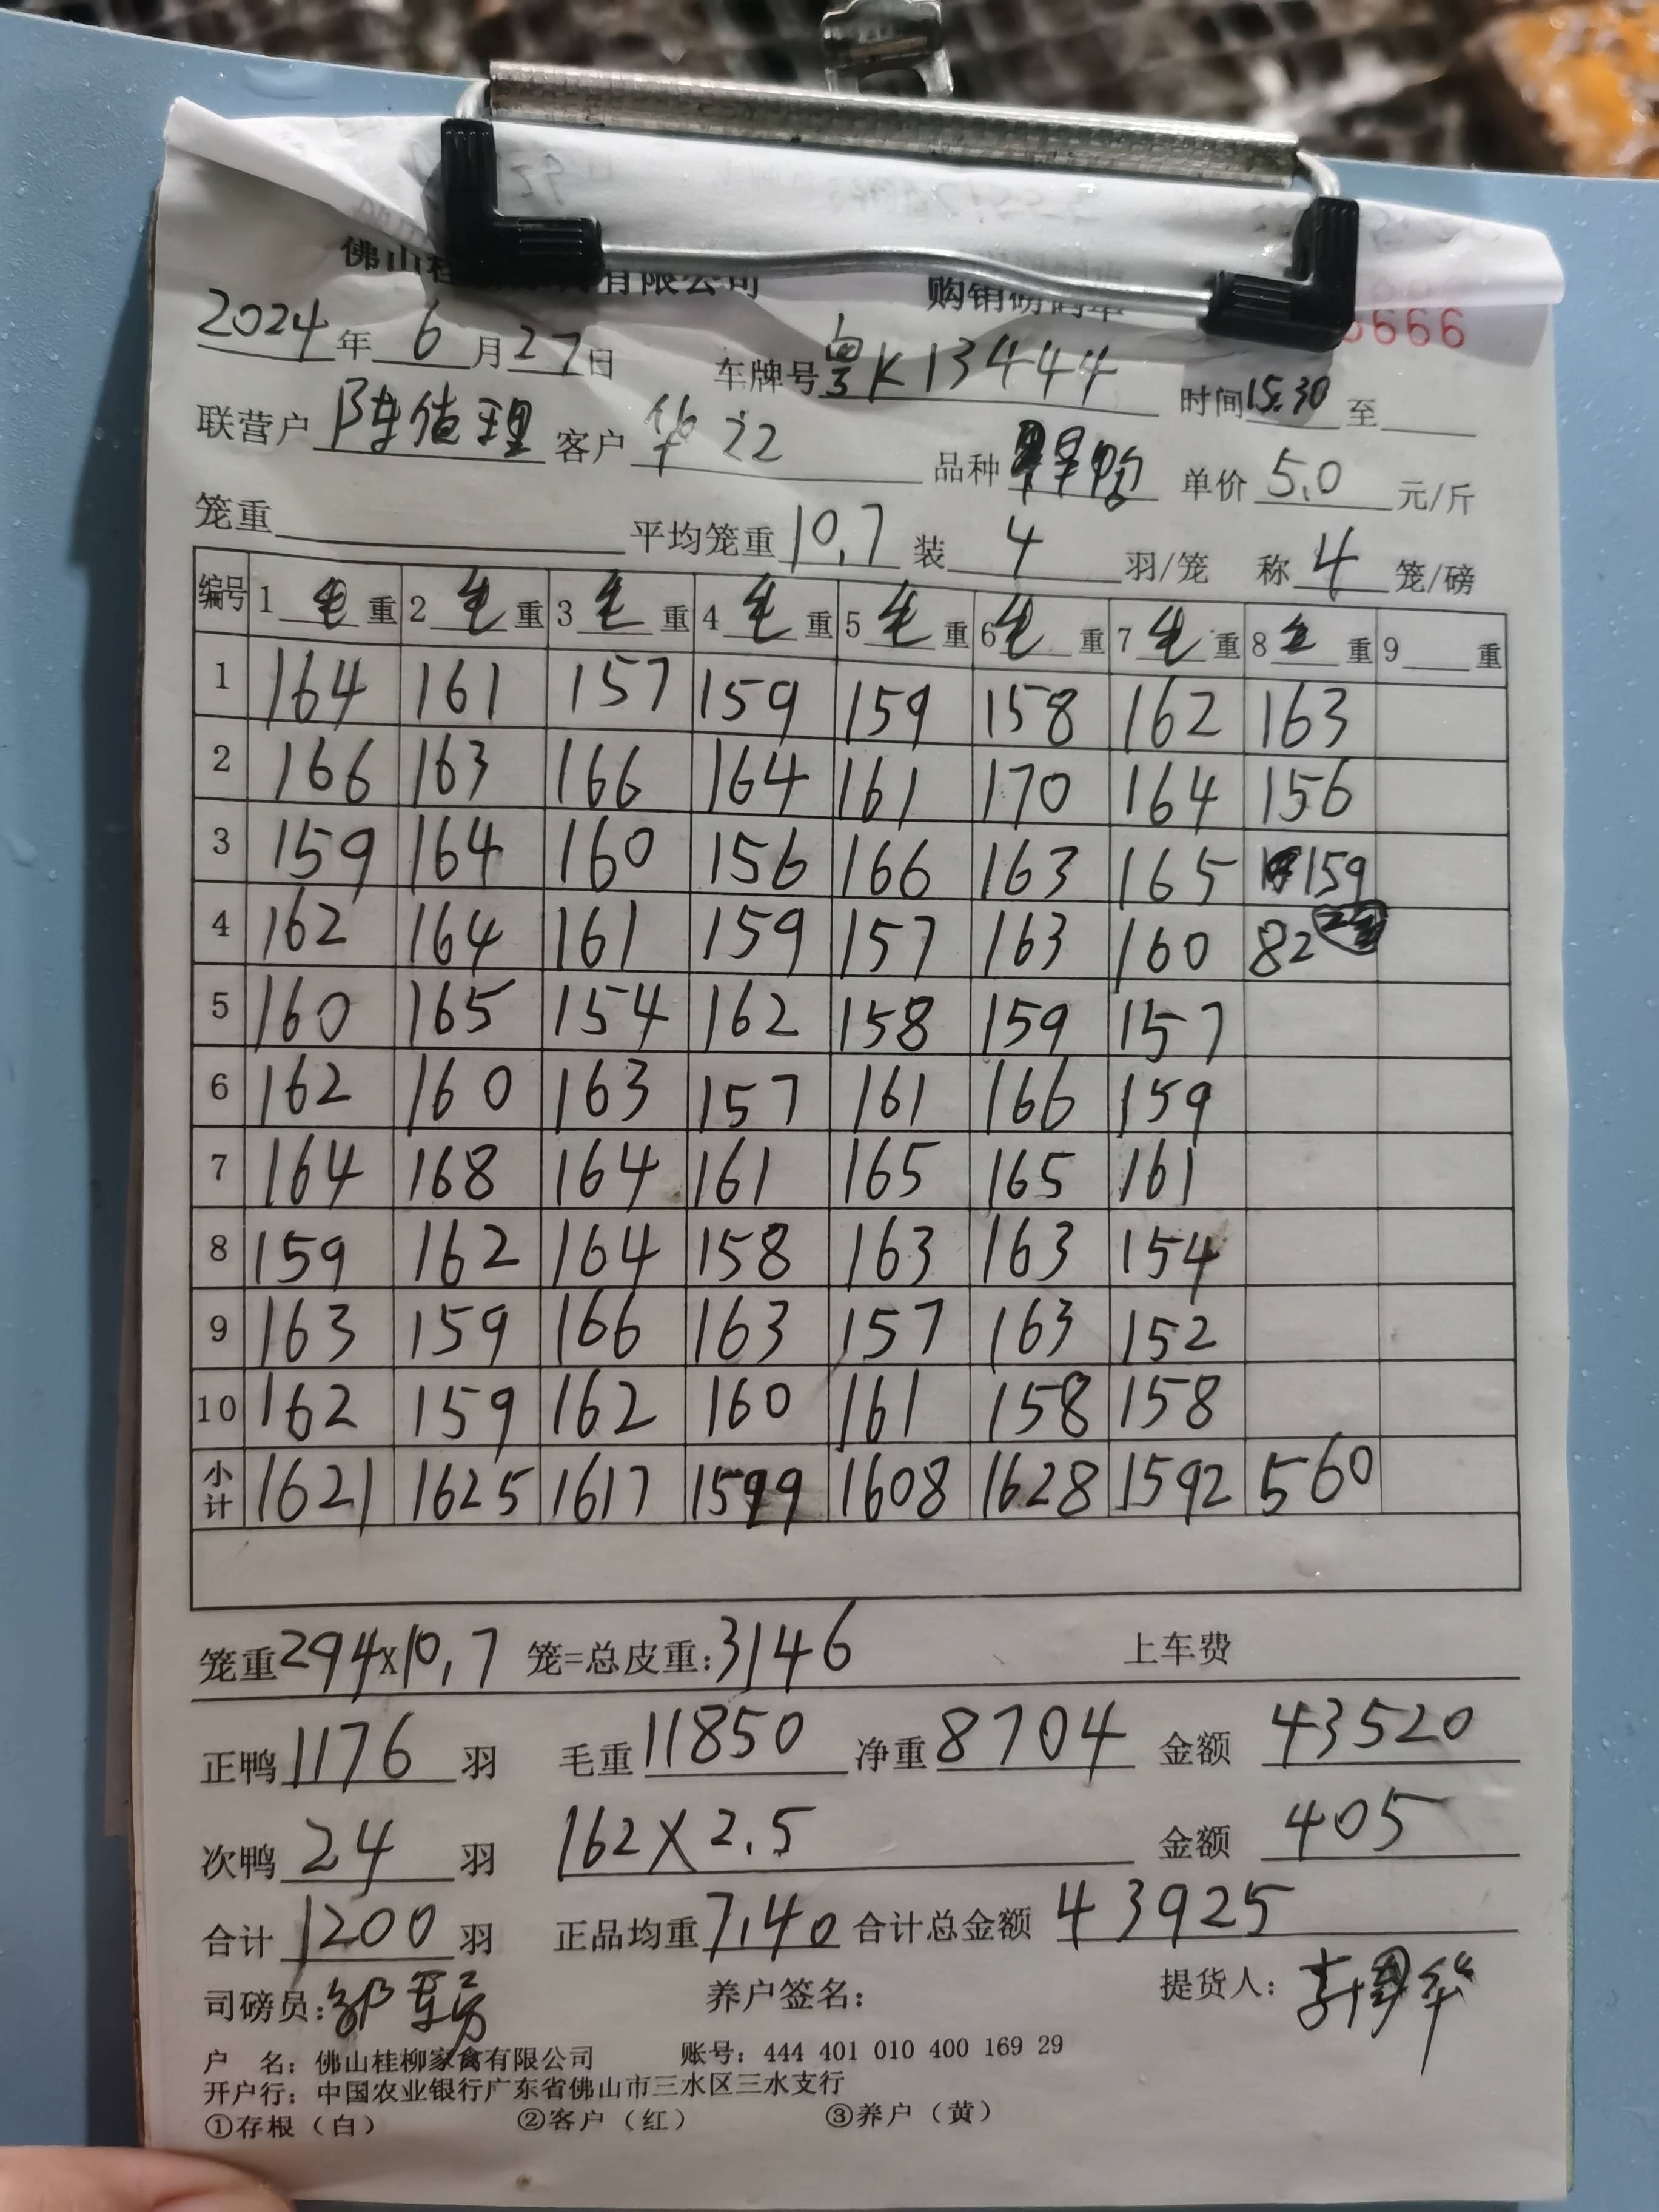 佛山桂 有限公司 购销磅码单 6666
2024年6月27日 车牌号粤K13444 时间15:30至
联营户陈值理 客户华記 品种 单价5.0元/斤
笼重 平均笼重10.7装4羽/笼 称4笼/磅
编号 1毛重 2毛重 3毛重 4毛重 5毛重 6毛重 7毛重 8毛重 9重
1 164 161 157 159 159 158 162 163
2 166 163 166 164 161 170 164 156
3 159 164 160 156 166 163 165 159
4 162 164 161 159 157 163 160 82
5 160 165 154 162 158 159 157
6 162 160 163 157 161 166 159
7 164 168 164 161 165 165 161
8 159 162 164 158 163 163 154
9 163 159 166 163 157 163 152
10 162 159 162 160 161 158 158
小计 1621 1625 1617 1599 1608 1628 1592 560
笼重294x10.7笼=总皮重:3146 上车费
正鸭1176羽 毛重11850净重8704金额43520
次鸭24羽 162X2.5 金额405
合计1200羽 正品均重7.40合计总金额43925
司磅员: 养户签名: 提货人:
户 名: 佛山桂柳家禽有限公司 账号: 444 401 010 400 169 29
开户行: 中国农业银行广东省佛山市三水区三水支行
①存根(白) ②客户(红) ③养户(黄)